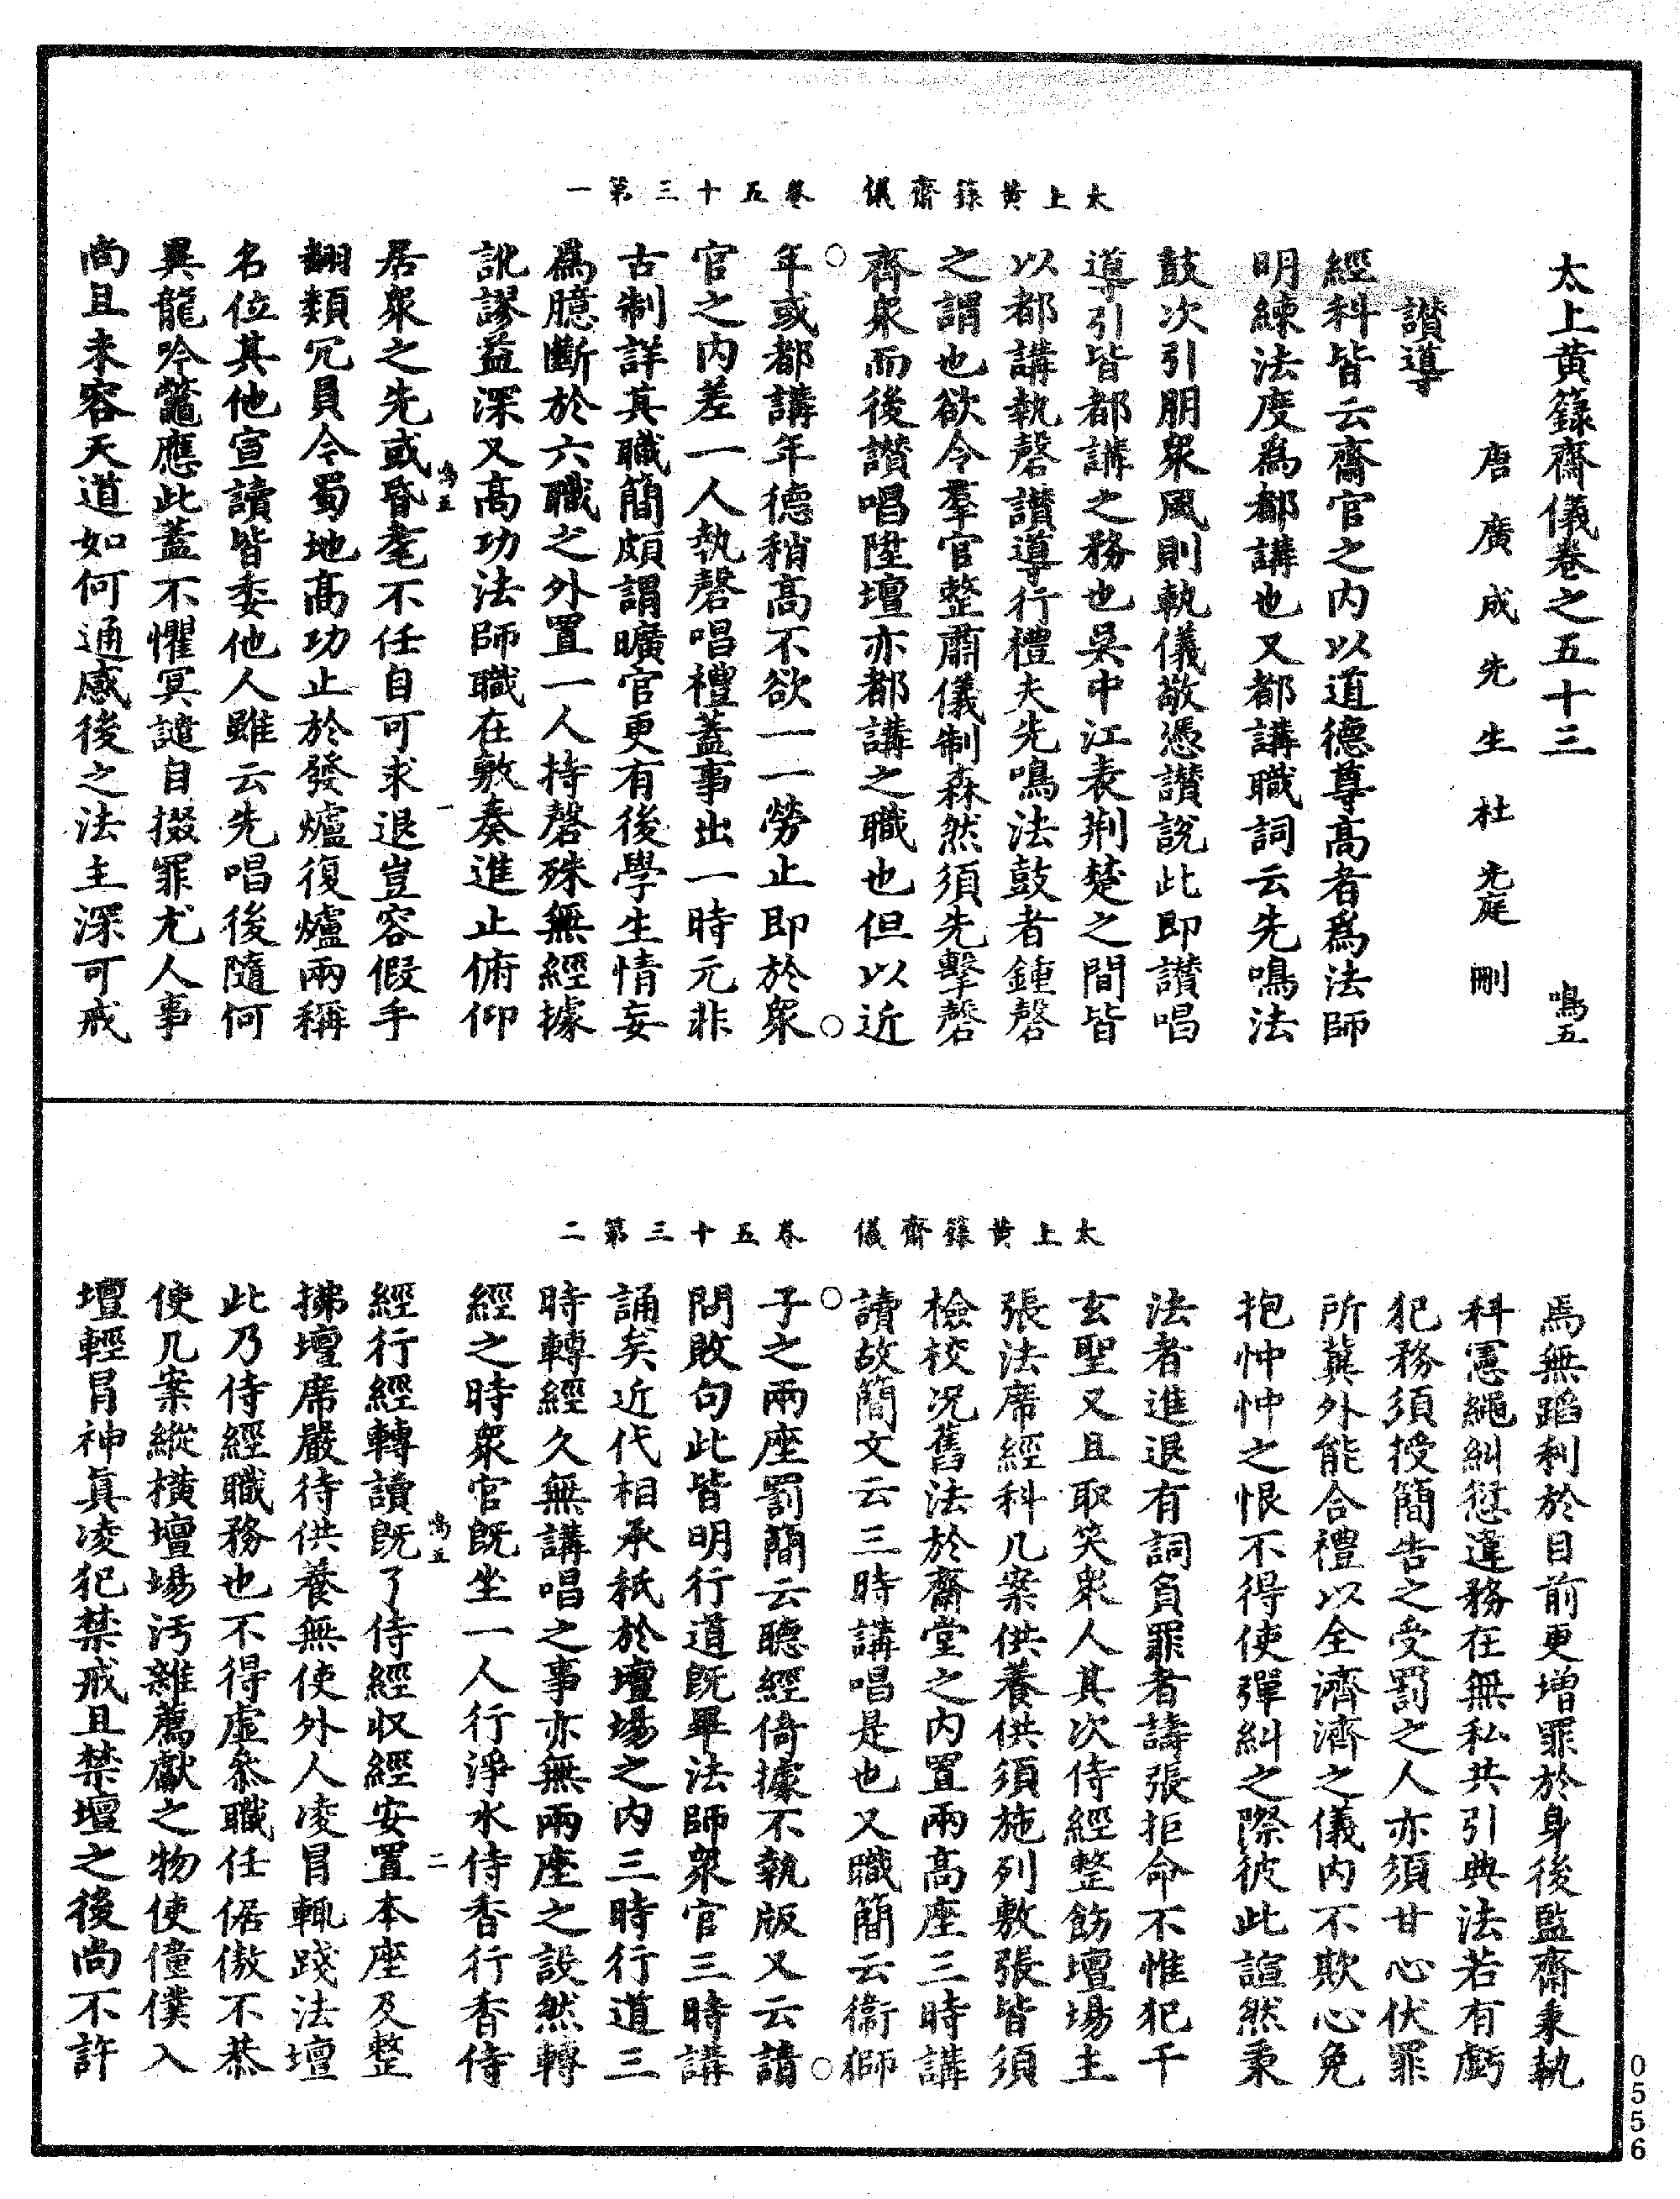 太上黃籙齋儀　卷五十三第一
太上黃籙齋儀卷之五十三　鳴五
唐廣成先生杜光庭刪
讃導
經科皆云齋官之內以道德尊高者爲法師
明練法度爲都講也又都講職詞云先鳴法
鼓次引朋衆風則執儀敬憑讃說此即讃唱
導引皆都講之務也吳中江表荆楚之間皆
以都講執磬讃導行禮夫先鳴法鼓者鍾磬
之謂也欲令羣官整肅儀制森然須先擊磬
齊衆而後讃唱陞壇亦都講之職也但以近
年或都講年德稍高不欲一一勞止即於衆
官之內差一人執磬唱禮蓋事出一時元非
古制詳其職簡頗謂曠官更有後學生情妄
爲臆斷於六職之外置一人持磬殊無經據
訛謬益深又高功法師職在敷奏進止俯仰
鳴五　一
居衆之先或昏耄不任自可求退豈容假手
翻類冗員今蜀地高功止於發爐復爐兩稱
名位其他宣讀皆委他人雖云先唱後隨何
異龍吟鼈應此蓋不懼冥譴自掇罪尤人事
尚且未容天道如何通感後之法主深可戒
太上黃籙齋儀　卷五十三第二
焉無蹈利於目前更增罪於身後監齋秉執
科憲繩糾愆違務在無私共引典法若有虧
犯務須授簡告之受罰之人亦須甘心伏罪
所冀外能合禮以全濟濟之儀內不欺心免
抱忡忡之恨不得使彈糾之際彼此諠然秉
法者進退有詞負罪者譸張拒命不惟犯干
玄聖又且取笑衆人其次侍經整飭壇場主
張法席經科几案供養供須施列敷張皆須
檢校况舊法於齋堂之內置兩高座三時講
讀故簡文云三時講唱是也又職簡云衝獅
子之兩座罰簡云聽經倚據不執版又云請
問敗句此皆明行道旣畢法師衆官三時講
誦矣近代相承秖於壇場之內三時行道三
時轉經久無講唱之事亦無兩座之設然轉
經之時衆官旣坐一人行淨水侍香行香侍
鳴五　二
經行經轉讀旣了侍經収經安置本座及整
拂壇席嚴待供養無使外人凌冒輒踐法壇
此乃侍經職務也不得虛叅職任倨傲不恭
使几案縱橫壇場汚雜薦獻之物使僮僕入
壇輕冒神眞凌犯禁戒且禁壇之後尚不許
0556